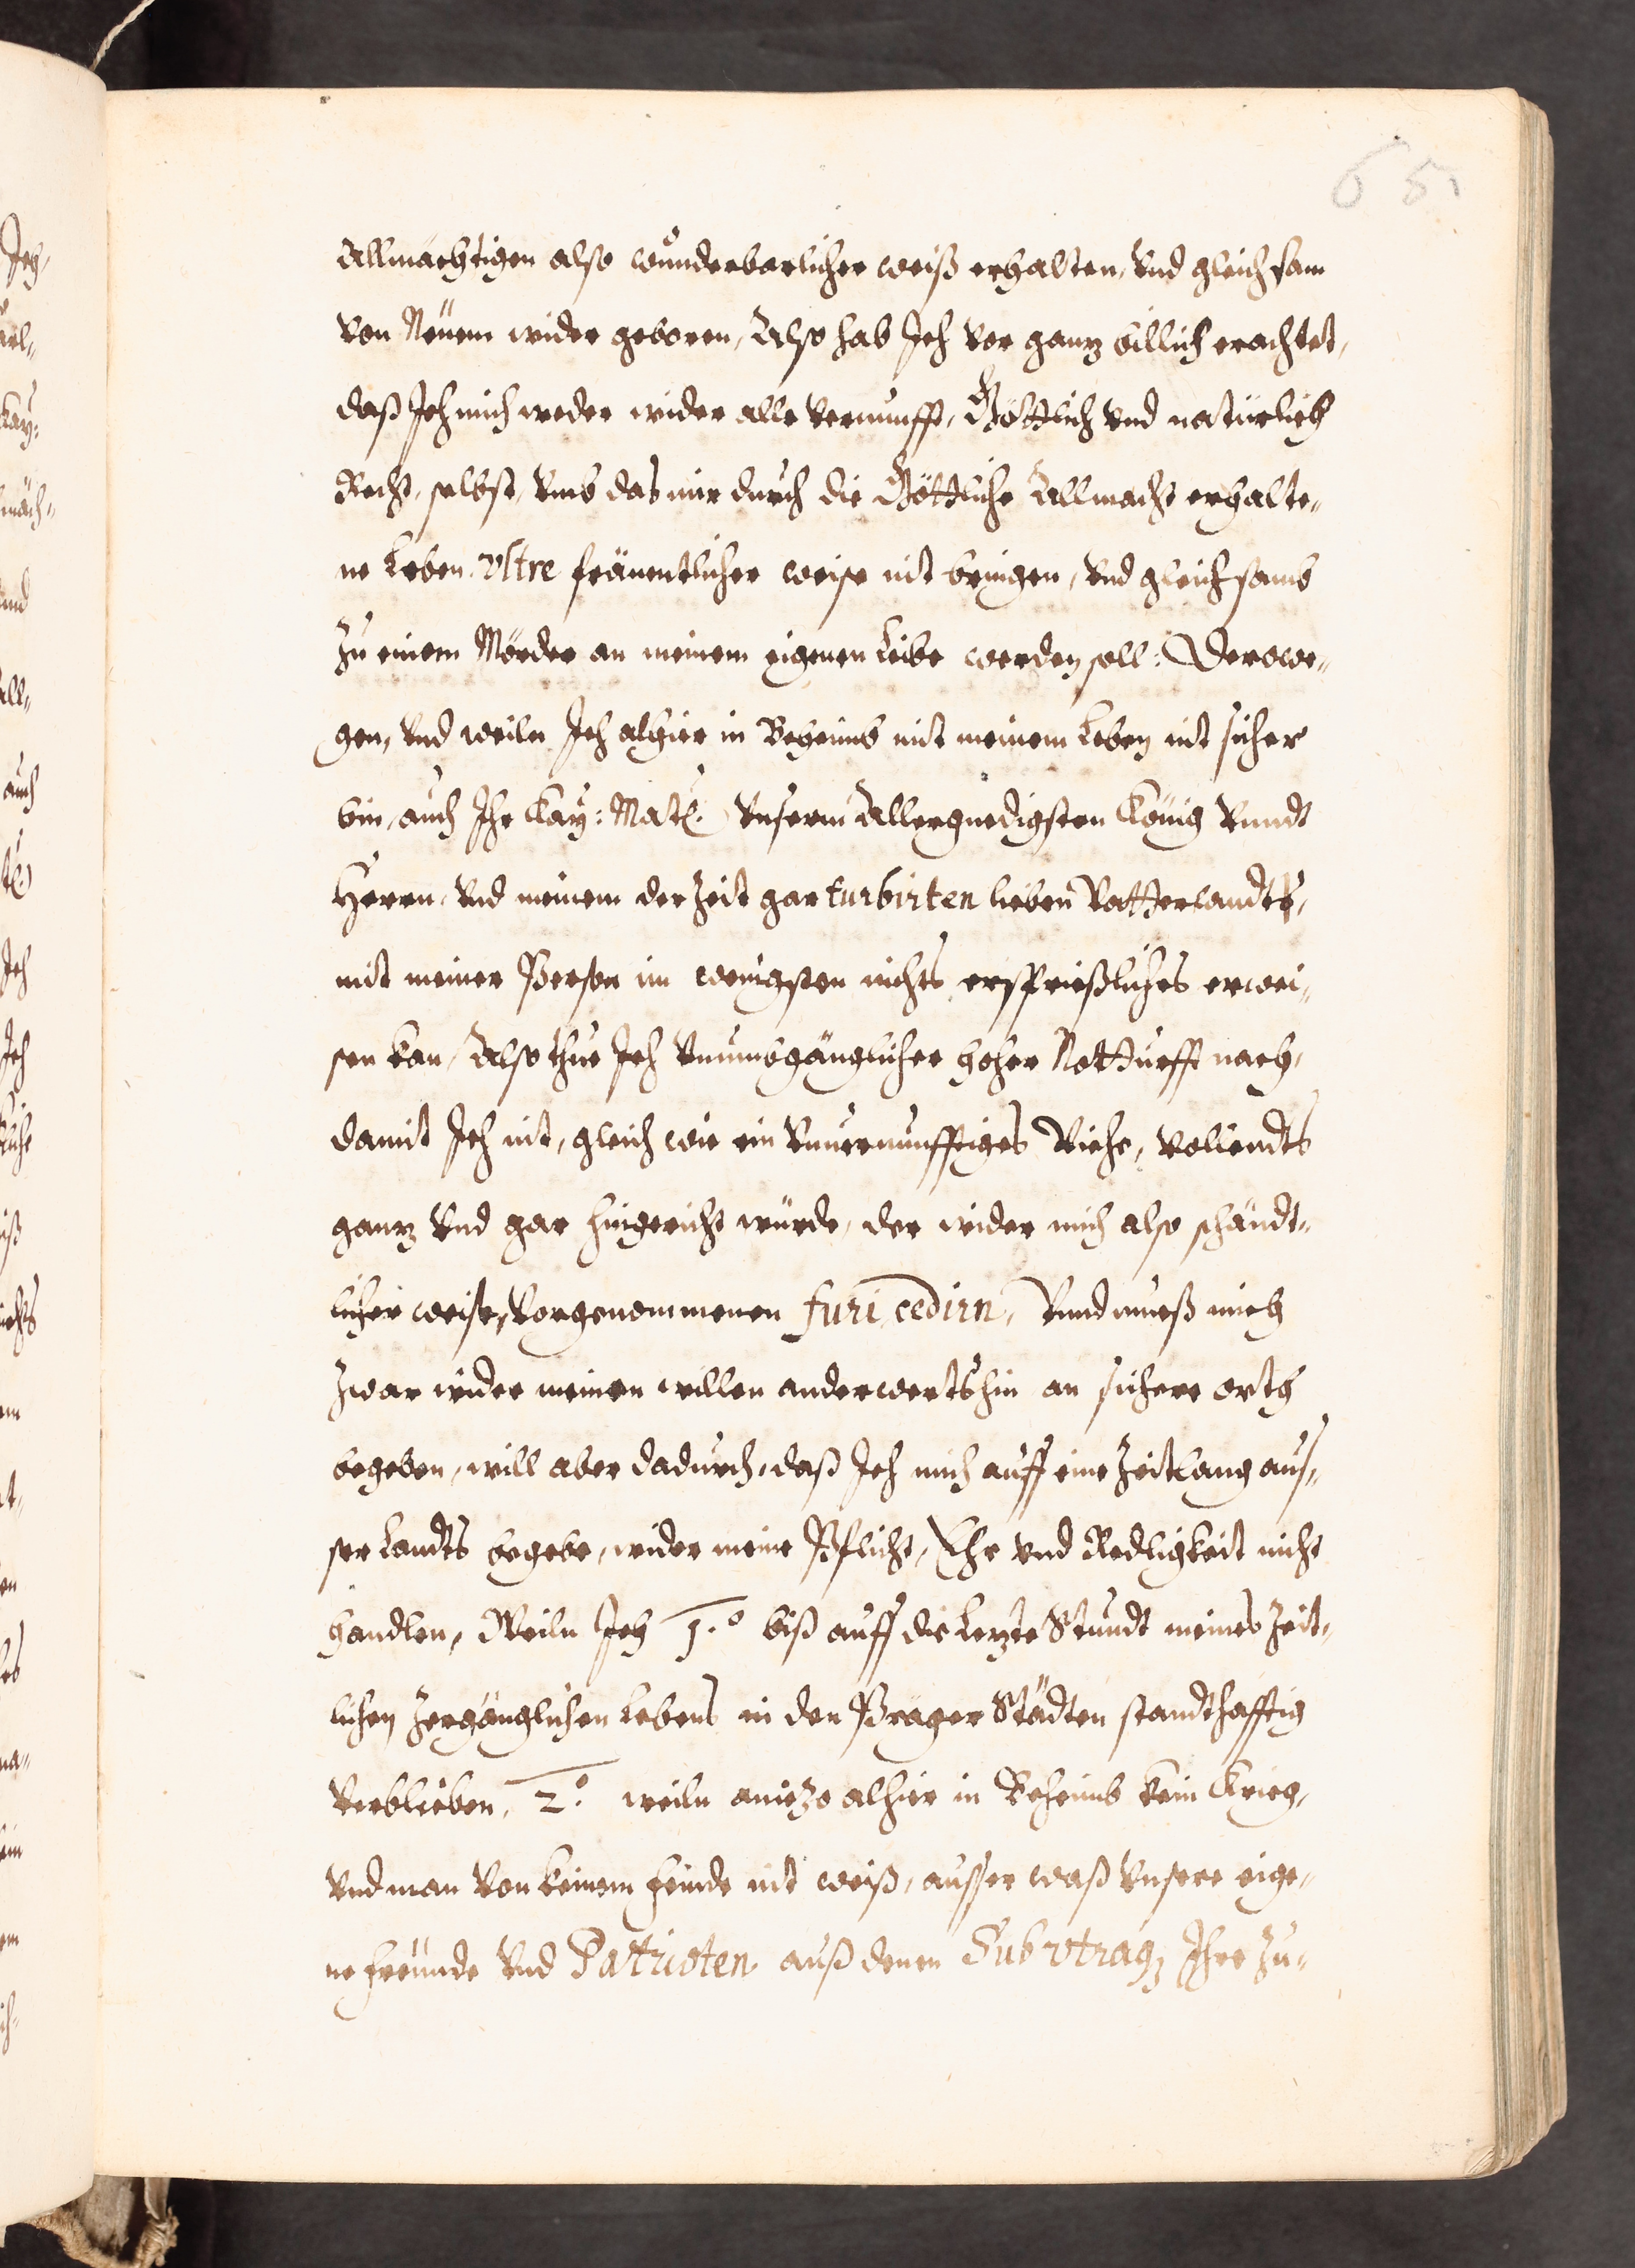 65
Allmächtigen also wunderbarlicher weiß erhalten, vnd gleichsam
von Neüem wider geboren, Also hab Ich vor ganz billich erachtet,
daß Ich mich weder wider alle vernunfft, Göttlich vnd natürlich
Recht, selbst, vmb das mir durch die Göttliche Allmacht erhalte„
ne Leben vltre fräuentlicher weise nit bringen, vnd gleichsamb
zu einem Mörder an meinem eigenen Leibe werden soll: Derowe„
gen, vnd weiln Ich alhier in Beheimb mit meinem Leben nit sicher
bin, auch Ihr Kay: Matt. vnserm Allergnedigsten König vnndt
Herrn, vnd meinem der Zeit gar turbirten lieben Vatterlandts,
mit meiner Person im wenigsten nichts ersprießliches erwei„
sen kan, Also thue Ich vnumbgänglicher hoher Notturfft nach,
damit Ich nit, gleich wie ein vnuernunfftiges Viehe, vollendts
ganz vnd gar hingericht würde, der wider mich also schändt„
licher weise, vorgenommenen furi cedirn, vnnd mueß mich
zwar wider meinen willen anderwertshin an sichere orth
begeben, will aber dadurch, daß Ich mich auff eine Zeitlang aus„
ser Landts begebe, wider meine Pflicht, Ehr vnd Redligkeit nicht
handlen, Weiln Ich 1.o biß auff die Lezte Stundt meines Zeit„
lichen zergänglichen Lebens in den Prager Städten standthafftig
verblieben, 2.o weiln aniezo alhier in Beheimb kein Krieg,
vnd man von keinem feinde nit weiß, ausser waß vnsere eige„
ne freunde vnd Patrioten auß denen Sub vtraq3 Ihre zu„